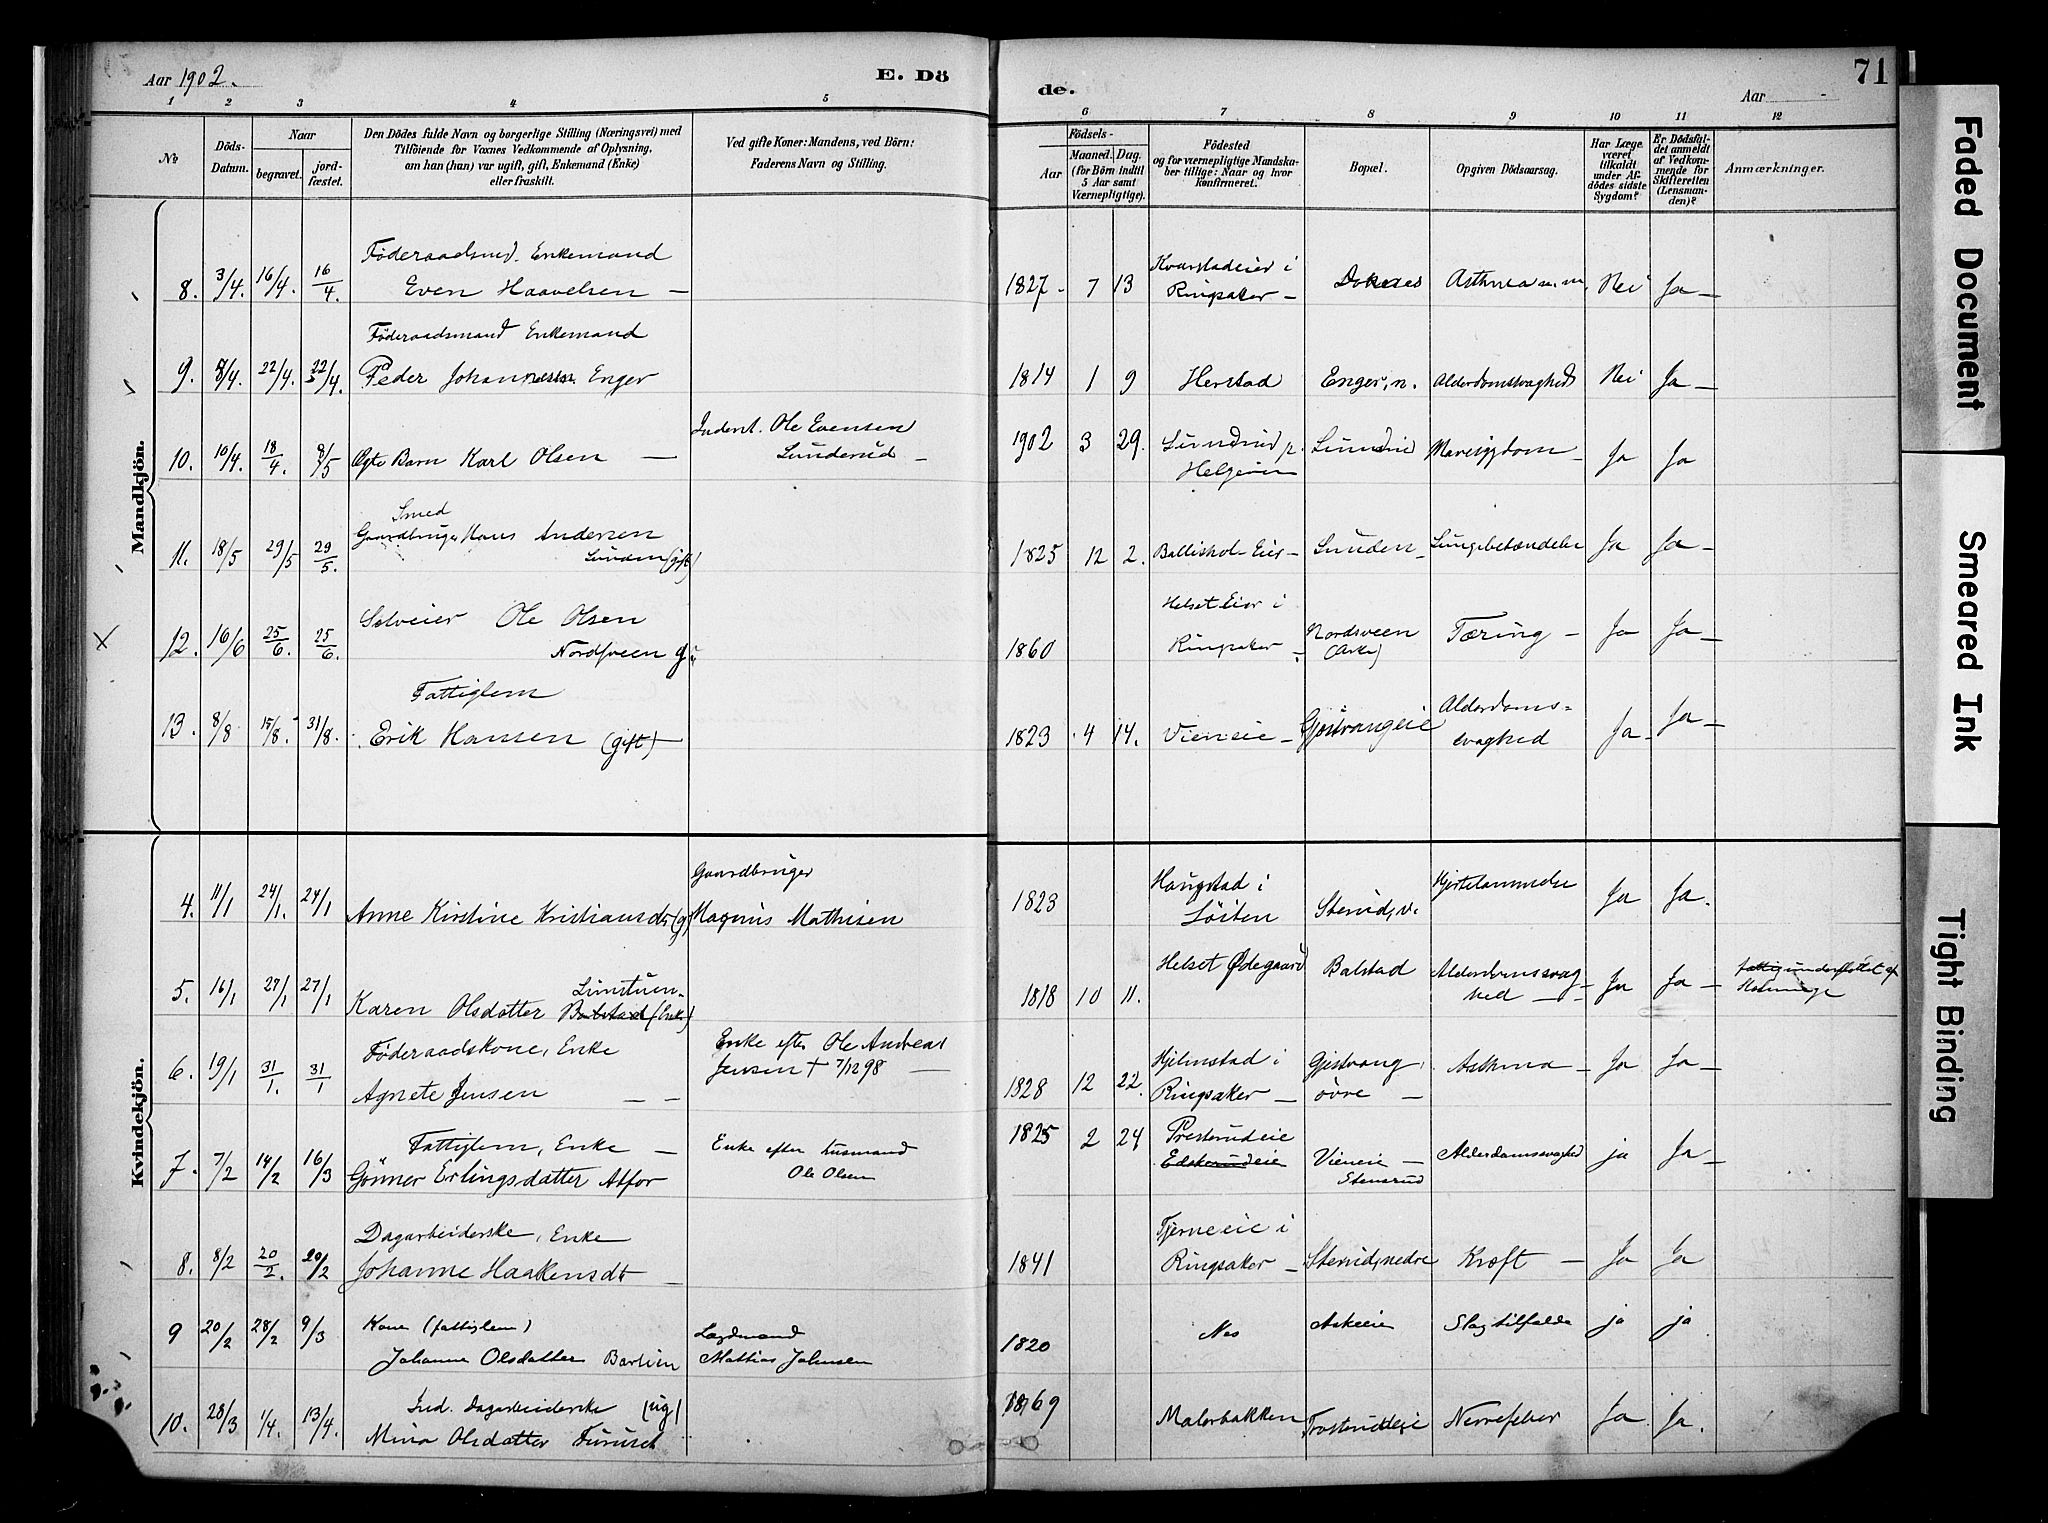 Aar 1902.
E. Dö
de.
Aar
71
1 2 3 4 5 6 7 8 9 10 11 12
No
Döds-Datum.
Naar
begravet.
jordfæstet.
Den Dödes fulde Navn og borgerlige Stilling (Næringsvei) med
Tilföiende for Voxnes Vedkommende af Oplysning,
om han (hun) var ugift, gift, Enkemand (Enke)
eller fraskilt.
Ved gifte Koner: Mandens, ved Börn:
Faderens Navn og Stilling.
Födsels-
Aar
Maaned. Dag.
(for Börn indtil
5 Aar samt
Værnepligtige).
Födested
og for værnepligtige Mandska-
ber tillige: Naar og hvor
konfirmeret.
Bopæl.
Opgiven Dödsaarsag.
Har Læge
været
tilkaldt
under Af-
dödes sidste
Sygdom?
Er Dödsfal-
det anmeldt
af Vedkom-
mende for
Skifteretten
(Lensman-
den)?
Anmærkninger.
Mandkjön.
Föderaadsmd. Enkemand
8. 3/4. 16/4. 16/4. Even Haavelsen —
1827 - 7 13 Kvarstadeier i
Ringsaker - Asthma m.m. Nei Ja —
Föderaadsmand Enkemand
9. 8/4. 22/4. 22/4. Peder Johannessen Enger
1814 1 9 Herstad Enger, n. Alderdomssvaghed Nei Ja —
10. 10/4. 18/4. 8/5 Ægte Barn Karl Olsen —
Inderst. Ole Evensen
Lunderud -
1902 3 29. Lundrud p.
Mavesygdom - Ja Ja
Smed
11. 18/5 29/5 29/5. Gaardbruger Hans Andersen
Lunden (gift)
1825 12 2. Ballishol Eier - Lunden - Lungebetændelse Ja Ja -
12. 16/6 25/6. 25/6. Selveier Ole Olsen
Nordsveen g.
1860 Helset Eier i
Ringsaker - Nordsveen
Tæring - Ja Ja -
Fattiglem
13. 8/8 15/8. 31/8. Erik Hansen (gift) —
1823 4 14. Vienseie - Gjestvangeie Alderdoms-
svaghed Ja - Ja -
Kvindekjön.
4. 11/1 24/1. 24/1 Anne Kirstine Kristiansdt. (g)
Gaardbruger
Magnus Mathisen
1823 Haugstad i
Löiten Sterud, v. Hjertelammelse Ja Ja.
5. 16/1 27/1 27/1 Lunstuen.
Karen Olsdatter Balstad (Enke)
1818 10 11. Helset Ødegaard Balstad Alderdomssvag-
hed — Ja Ja - fattigunderstöttet af
6. 19/1 31/1. 31/1 Föderaadskone, Enke
Agnete Jensen — —
Enke efter Ole Andreas
Jensen † 7/12 98 —
1828 12 22. Hjelmstad i
Ringsaker — Gjestvang,
övre — Asthma - Ja Ja -
7. 7/2 14/2 16/3 Fattiglem, Enke —
Gönner Erlingsdatter Atfor
Enke efter Husmand
Ole Olsen
1825 2 24 Presterudeie
Edskerudeie Vieneie —
Stensrud Alderdomssvaghed ja Ja -
8. 8/2 20/2. 20/2 Dagarbeiderske, Enke
Johanne Haakensdt. -
1841 Tjerneeie i
Ringsaker - Sterud, nedre Kræft — Ja Ja
9 20/2 28/2 9/3 Kone (fattiglem)
Johanne Olsdatter Barlien
Lægdmand
Mathias Johnsen
1820 Nes Askeeie Slagtilfælde ja ja
10. 28/3 1/4. 13/4. Ind. Dagarbeiderske (ug)
Mina Olsdatter Furuset
1869 Malerbakken Nervefeber Ja Ja.
Faded Document
Smeared Ink
Tight Binding